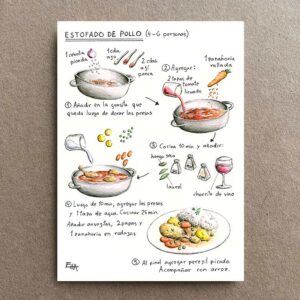 ESTOFADO DE POLLO (4-6 personas)
1 cebolla picada
1 cda ajo
2 cdas ají panca
1 zanahoria rallada
② Agregar:
2 tazas de tomate licuado
① Añadir en la grasita que
queda luego de dorar las presas
③ Cocina 10 min y añadir:
hongo seco
laurel
chorrito de vino
④ Luego de 10 min, agregar las presas
y 1 taza de agua. Cocinar 25 min.
Añadir arvejas, 2 papas y
1 zanahoria en rodajas
⑤ Al final agregar perejil picado.
Acompañar con arroz.